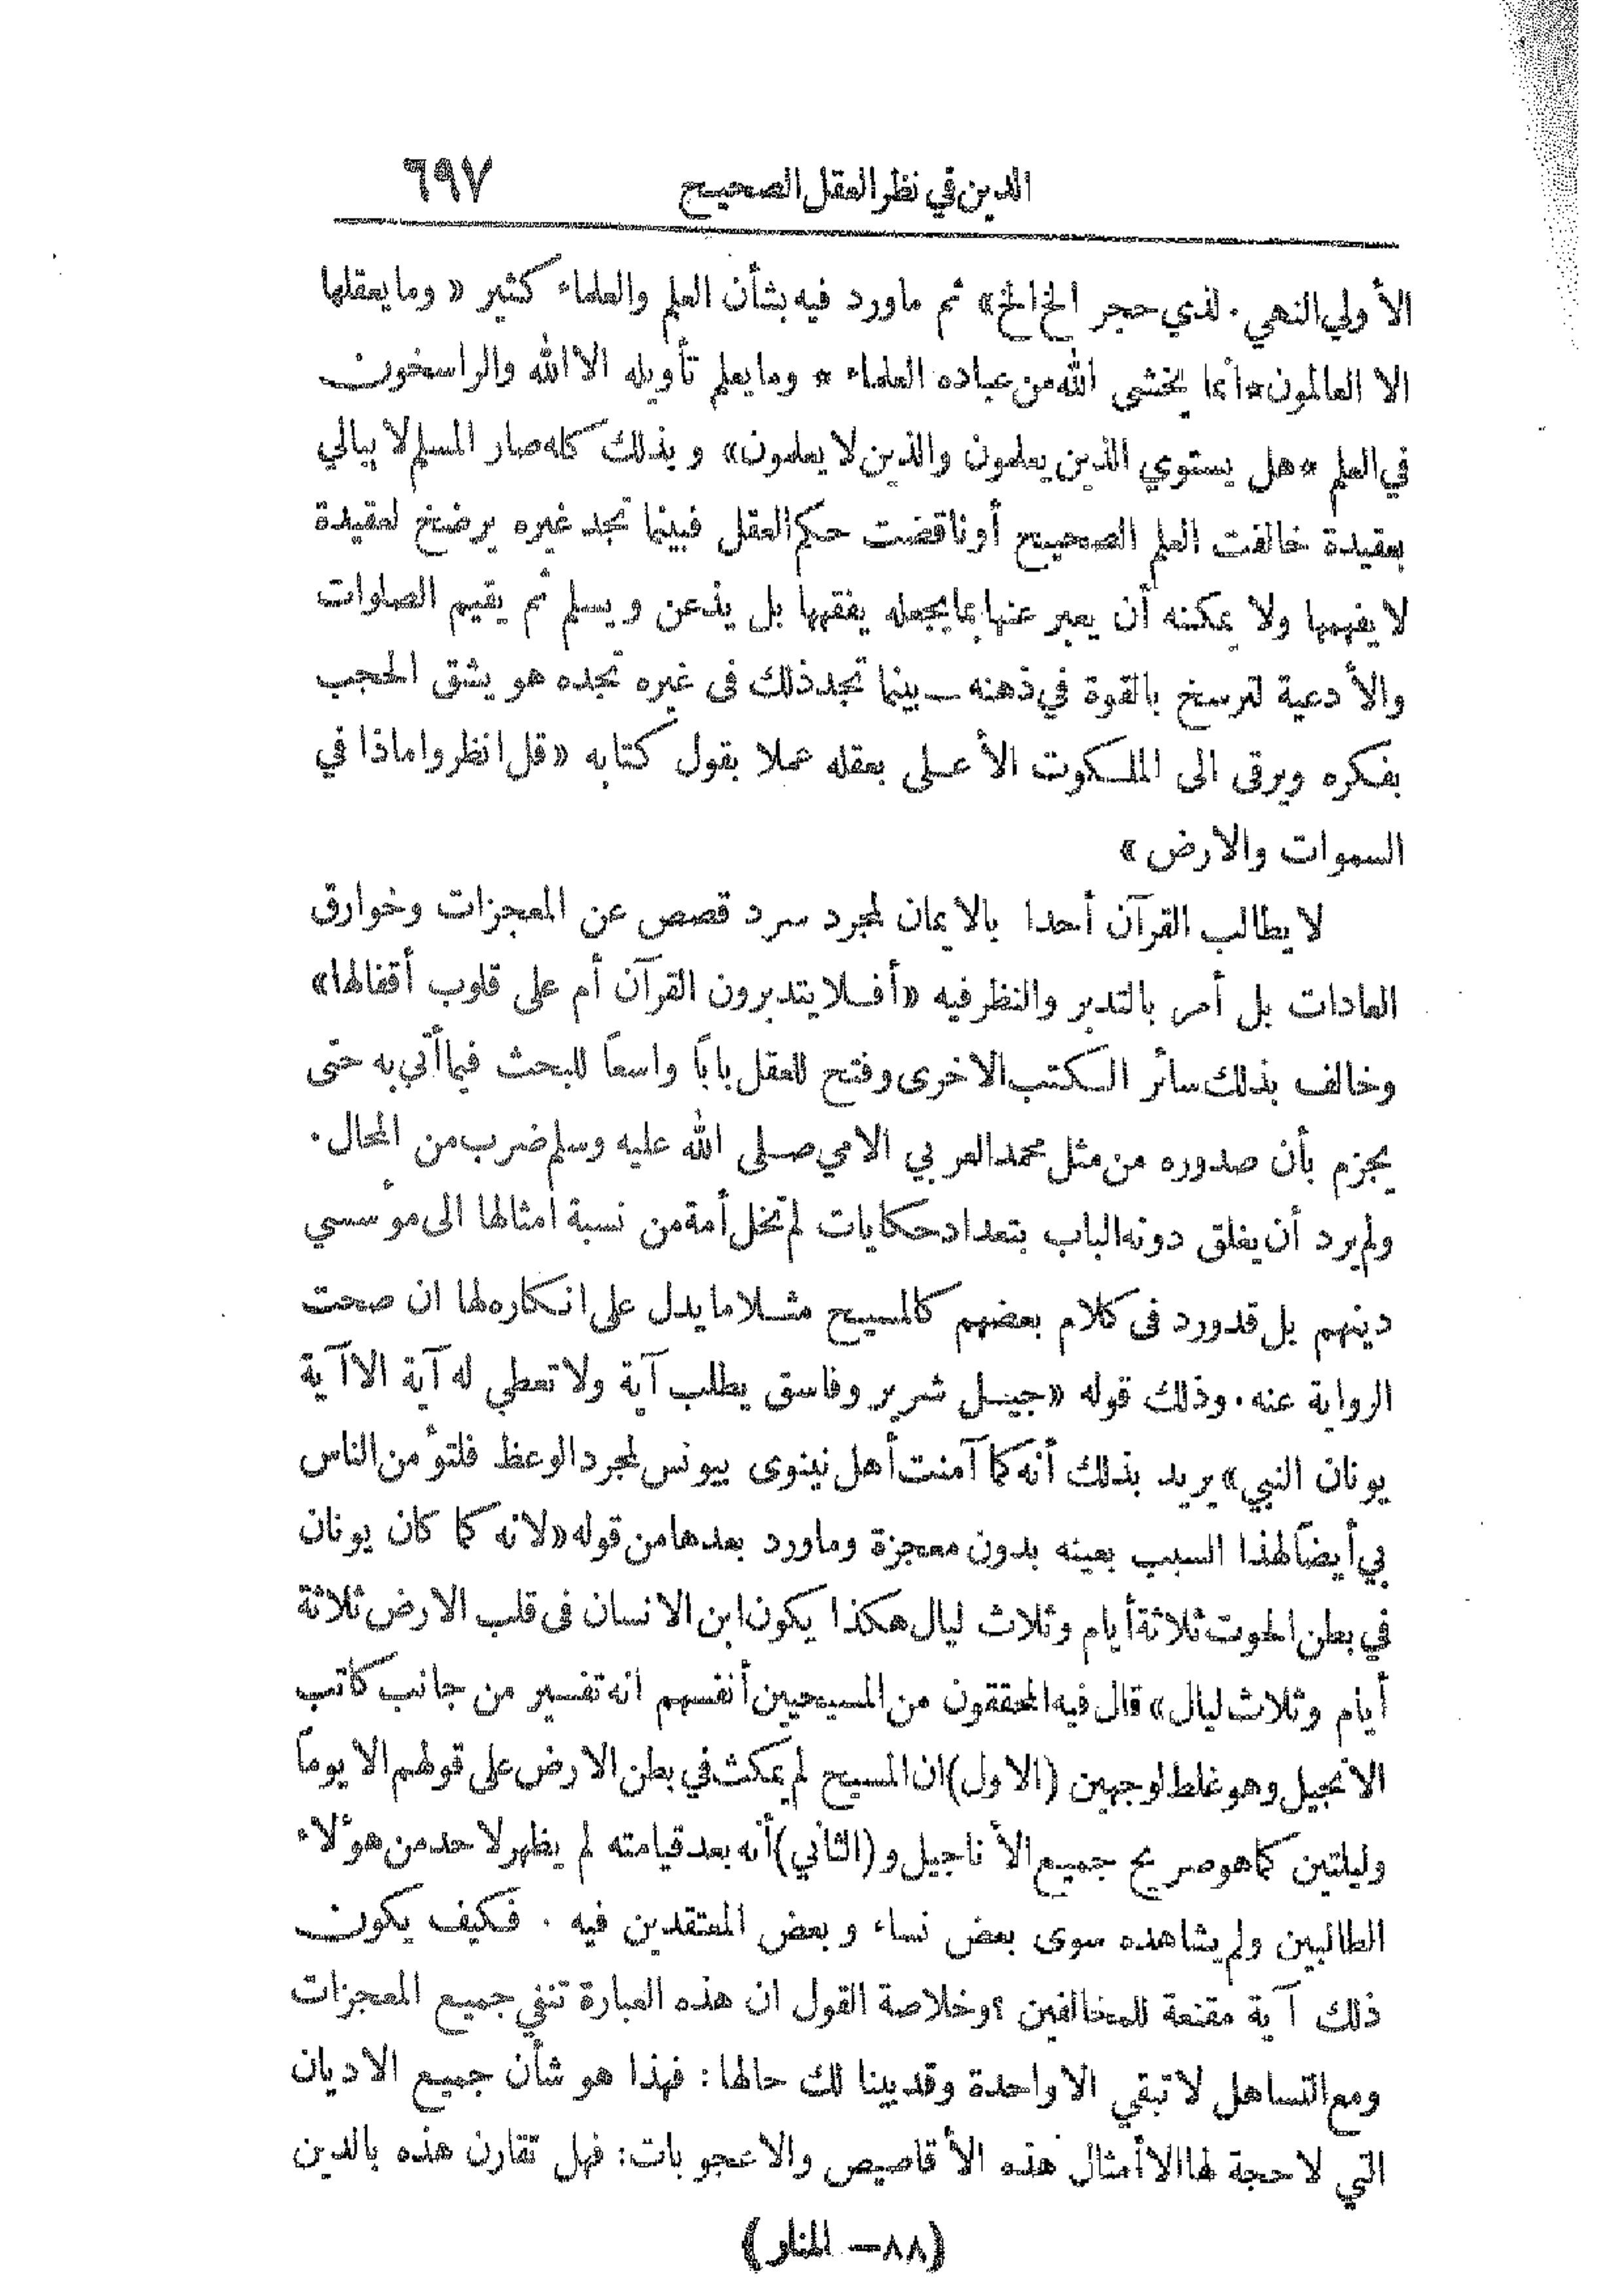 الدين في نظر العقل الصحيح ٦٩٧
الأولي النهي . لذي حجر الخ الخ» ثم ماورد فيه بشأن العلم والعلماء كثير « وما يعقلها
الا العالمون * انما يخشى الله من عباده العلماء * وما يعلم تأويله الا الله والراسخون
في العلم * هل يستوي الذين يعلمون والذين لا يعلمون» وبذلك كله صار المسلم لا يبالي
بعقيدة خالفت العلم الصحيح أو ناقضت حكم العقل فبينما تجد غيره يرضخ لعقيدة
لا يفهمها ولا يمكنه أن يعبر عنها بما يجعله يفقهها بل يذعن ويسلم ثم يقيم الصلوات
والأدعية لترسخ بالقوة في ذهنه — بينما تجد ذلك في غيره تجده هو يشق الحجب
بفكره ويرقى الى الملكوت الأعلى بعقله عملا بقول كتابه «قل انظروا ماذا في
السموات والارض »
لا يطالب القرآن أحدا بالايمان لمجرد سرد قصص عن المعجزات وخوارق
العادات بل أمر بالتدبر والنظر فيه «أفلا يتدبرون القرآن أم على قلوب أقفالها»
وخالف بذلك سائر الكتب الاخرى وفتح للعقل باباً واسعاً للبحث فيما أتي به حتى
يجزم بأن صدوره من مثل محمد العربي الامي صلى الله عليه وسلم ضرب من المحال .
ولم يرد أن يغلق دونه الباب بتعداد حكايات لم تخل أمة من نسبة امثالها الى مؤسسي
دينهم بل قد ورد في كلام بعضهم كالمسيح مثلا ما يدل على انكاره لها ان صحت
الرواية عنه . وذلك قوله «جيل شرير وفاسق يطلب آية ولا تعطي له آية الا آية
يونان النبي» يريد بذلك أنه كما آمنت أهل نينوى بيونس لمجرد الوعظ فلتؤمن الناس
بي أيضاً لهذا السبب بعينه بدون معجزة وما ورد بعدها من قوله «لانه كما كان يونان
في بطن الحوت ثلاثة أيام وثلاث ليال هكذا يكون ابن الانسان في قلب الارض ثلاثة
أيام وثلاث ليال» قال فيه المحققون من المسيحيين أنفسهم انه تفسير من جانب كاتب
الانجيل وهو غلط لوجهين (الاول) ان المسيح لم يمكث في بطن الارض على قولهم الا يوماً
وليلتين كما هو صريح جميع الأناجيل و (الثاني) أنه بعد قيامته لم يظهر لاحد من هؤلاء
الطالبين ولم يشاهده سوى بعض نساء وبعض المعتقدين فيه . فكيف يكون
ذلك آية مقنعة للمخالفين ؟ وخلاصة القول ان هذه العبارة تنفي جميع المعجزات
ومع التساهل لا تبقي الا واحدة وقد بينا لك حالها : فهذا هو شأن جميع الاديان
التي لا حجة لها الا أمثال هذه الأقاصيص والاعجوبات : فهل تقارن هذه بالدين
(٨٨ — المنار)